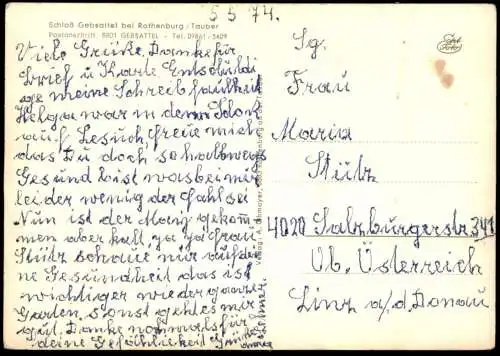 5 5 74.
Schloß Gebsattel bei Rothenburg / Tauber
Postanschrift: 8801 GEBSATTEL - Tel. 09861 - 3409
Viele Grüße. Danke für
Brief u Karte Entschuldi
ge meine Schreibfaulheit
Helga war in den
auf Besuch freue mich
das Du doch halbwegs
Gesund bist was bei mir
leider wenig der Fahl sei
Nun ist der May gekom
men aber kalt, ja ja Frau
Stütz schaue nur auf dei
ne Gesundheit das ist
wichtiger wie der ganze
Garten, sonst geht es mir
gut. Danke nochmals für
deine Gefälligkeit Grüße
Sg.
Frau
Maria
Stütz
4020 Salzburgerstr 341
Ob. Österreich
Linz a/d. Donau